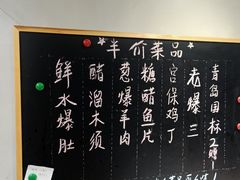 半价菜品
鲜水爆肚
醋溜木须
葱爆羊肉
糖醋鱼片
宫保鸡丁
老爆三
青岛国标2啤!